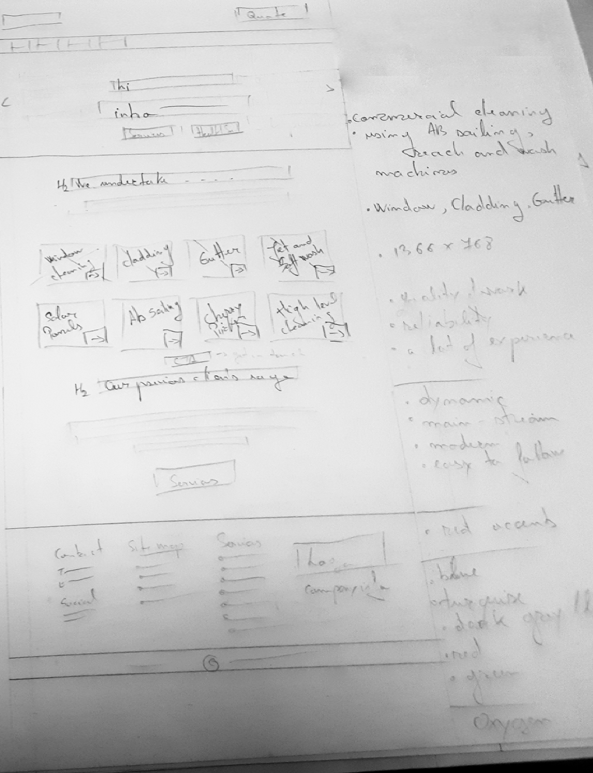 Quote
Hi
<
>
Services
H2 We undertake . . . .
Window cleaning
cladding
Gutter
Jet and Softwash
Solar Panels
AB sailing
Cherry Picker
High level cleaning
CTA
H2 Our previous clients range
Services
Contact
Sitemap
Services
T
Social
Logo
©
• commercial cleaning
• using AB sailing,
reach and wash
machines
• Window, Cladding, Gutter
• 1366 x 768
• quality work
• reliability
• a lot of experience
• dynamic
• main-stream
• modern
• easy to follow
• red accents
• blue
• turquoise
• dark gray
• red
• green
Oxygen